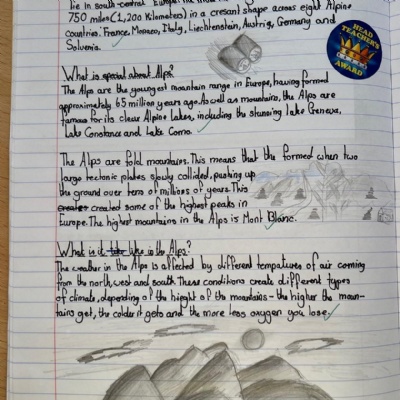 lie in south-central Europe.
750 miles (1,200 Kilometers) in a cresant shape across eight Alpine
countries: France, Monaco, Italy, Liechtenstein, Austria, Germany and
Solvenia.
HEAD TEACHER'S AWARD
What is special about Alps?
The Alps are the youngest mountain range in Europe, having formed
approximately 65 million years ago. As well as mountains, the Alps are
famous for its clear Alpine Lakes, including the stunning lake Geneva,
Lake Constance and Lake Como.
The Alps are fold mountains. This means that the formed when two
large tectonic plates slowly collided, pushing up
the ground over tens of millions of years. This
created some of the highest peaks in
Europe. The highest mountains in the Alps is Mont Blanc.
What is it like in the Alps?
The weather in the Alps is affected by different tempatures of air coming
from the north, west and south. These conditions create different types
of climate, depending of the hieght of the mountains - the higher the moun-
tains get, the colder it gets and the more less oxygen you lose.